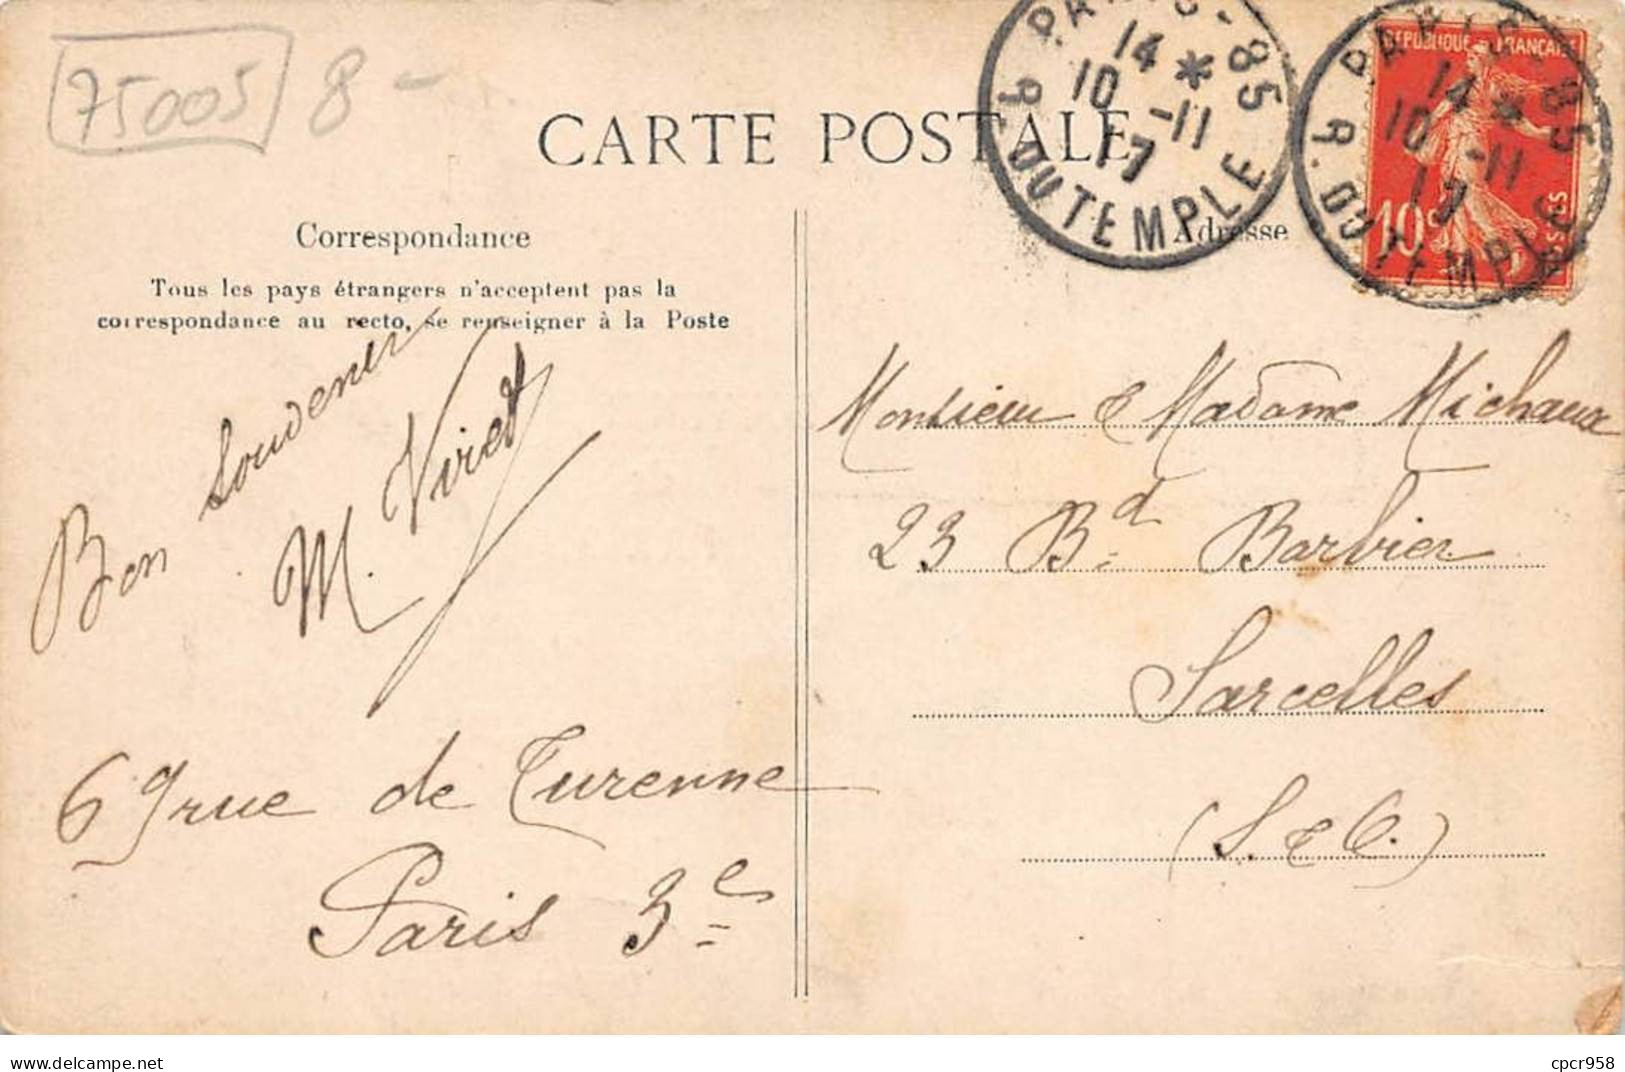 75005 8 -
CARTE POSTALE
PARIS - 85
14 *
10 -11
17
R. DU TEMPLE
PARIS - 85
14 *
10 -11
17
R. DU TEMPLE
REPUBLIQUE FRANÇAISE
10c
POSTES
Correspondance
Tous les pays étrangers n'acceptent pas la
correspondance au recto, se renseigner à la Poste
Adresse
Bon Souvenir
M. Viret
69 rue de Turenne
Paris 3e
Monsieur & Madame Michaux
23 Bd Barbier
Sarcelles
(S. & O.)
cpcr958